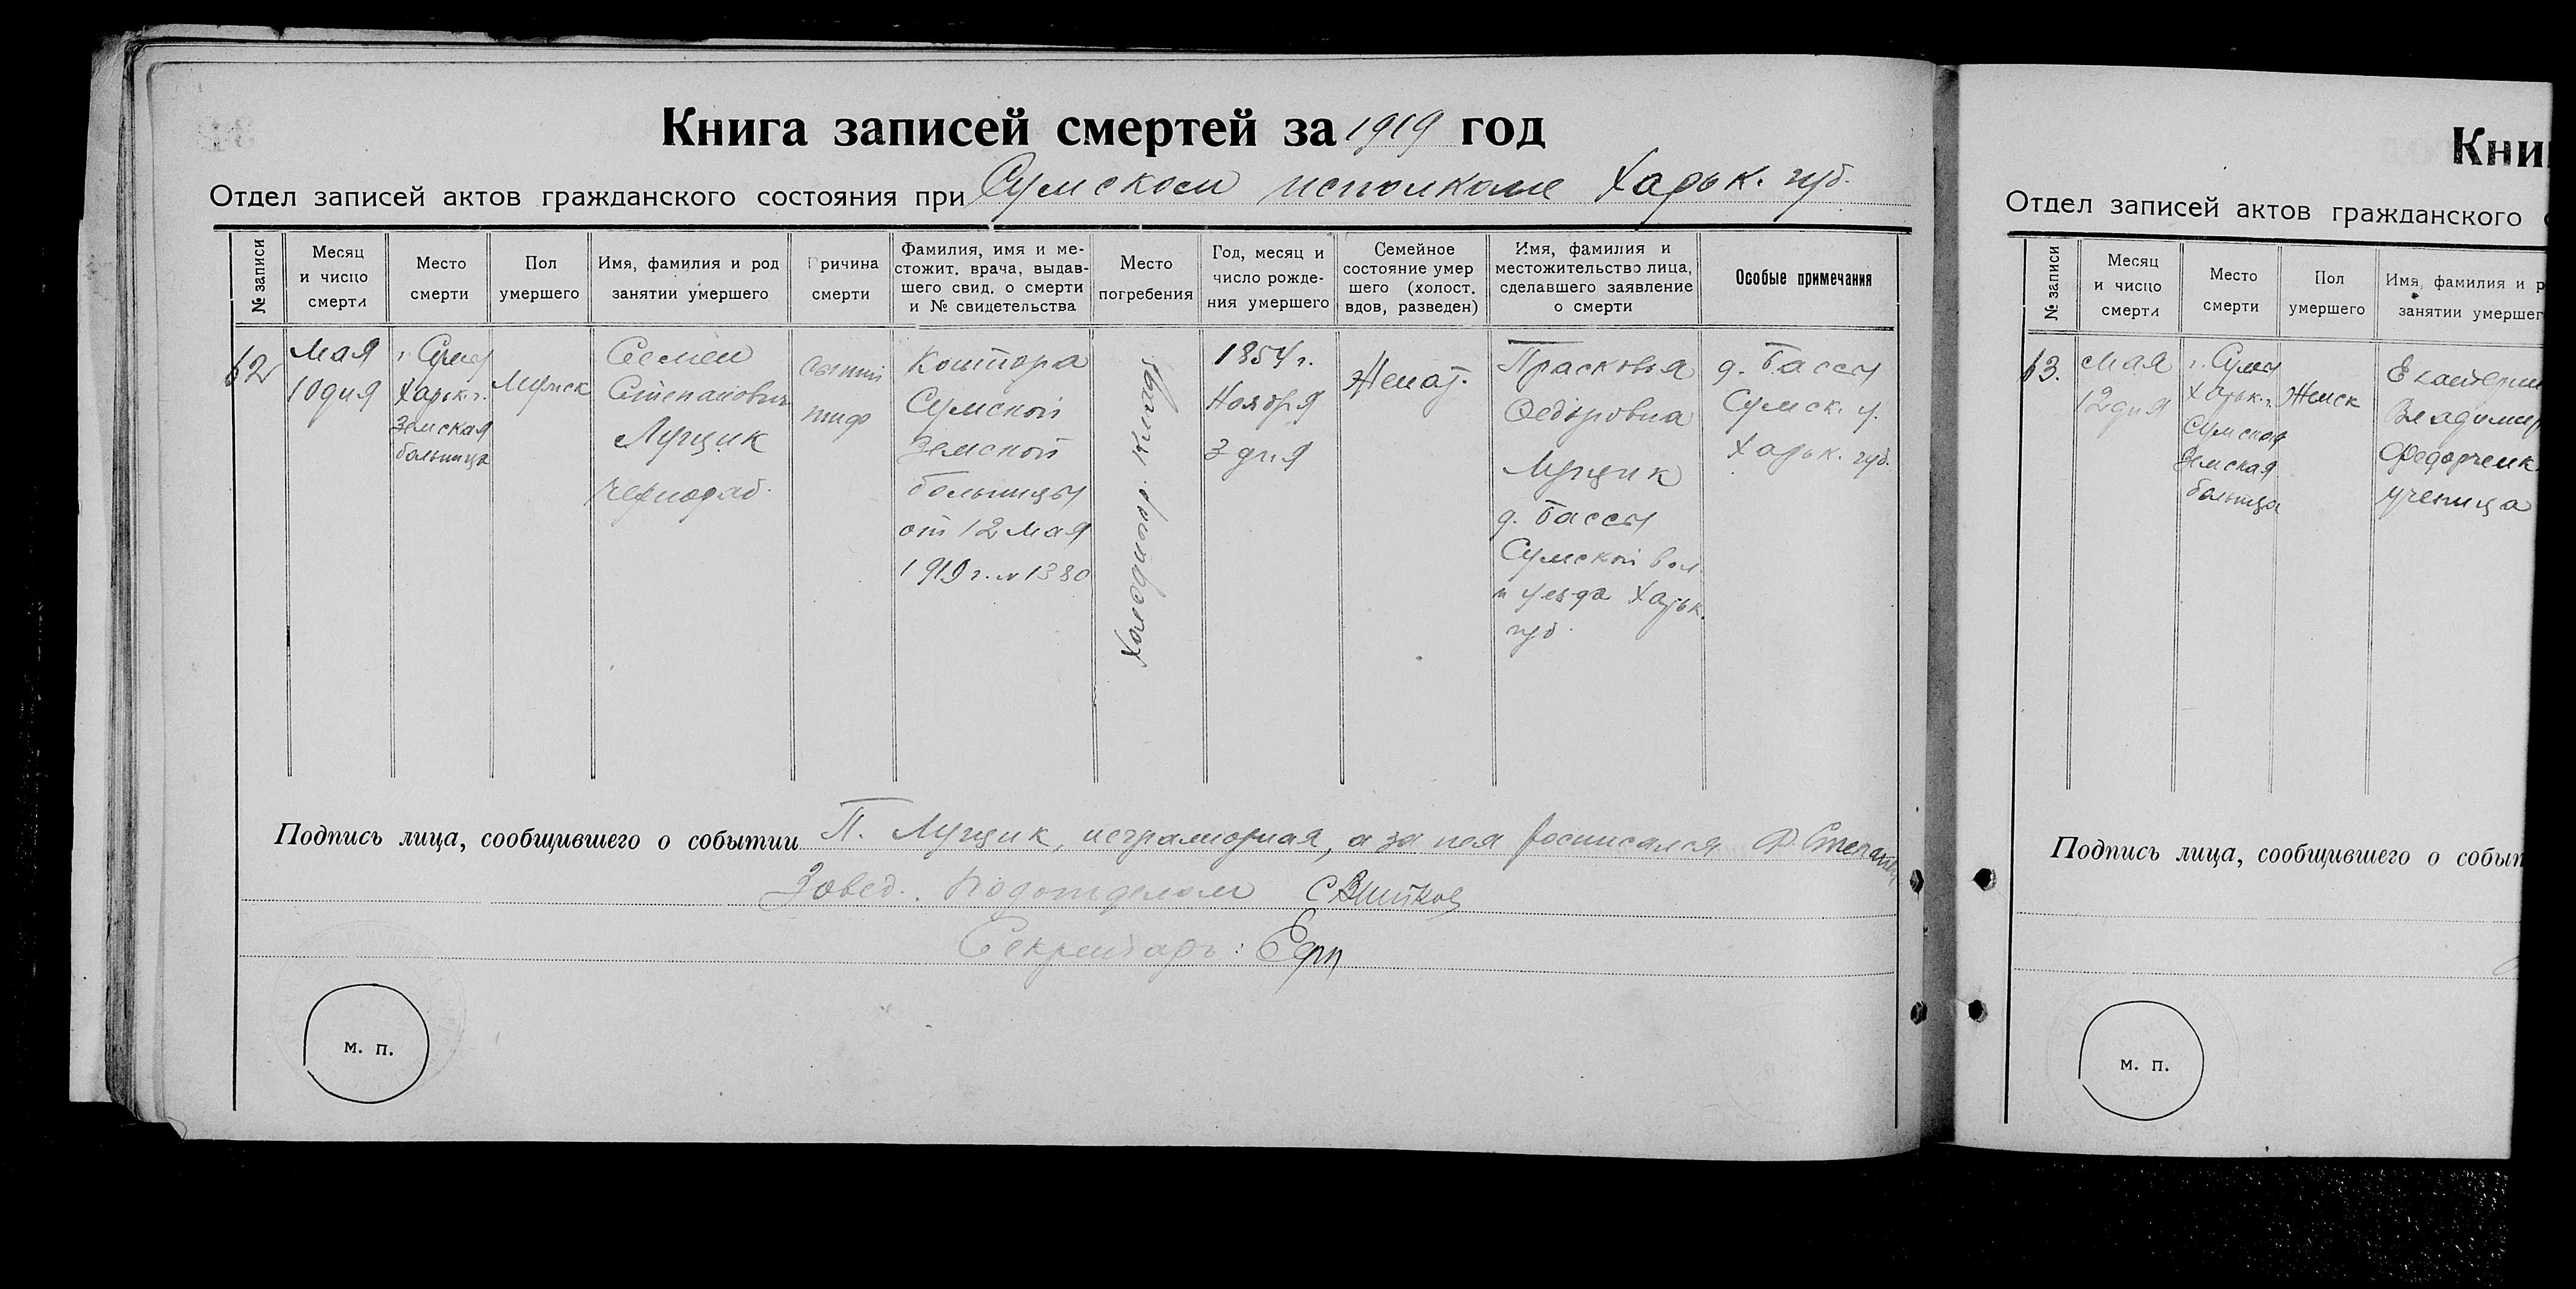 Книга записей смертей за 1919 год
Отдел записей актов гражданского состояния при Сумском исполкоме Харьк. губ.
№ записи
Месяц
и число
смерти
Место
смерти
Пол
умершего
Имя, фамилия и род
занятии умершего
Причина
смерти
Фамилия, имя и ме-
стожит. врача, выдав-
шего свид. о смерти
и № свидетельства
Место
погребения
Год, месяц и
число рожде-
ния умершего
Семейное
состояние умер
шего (холост.
вдов, разведен)
Имя, фамилия и
местожительство лица,
сделавшего заявление
о смерти
Особые примечания
62
Мая
10 дня
г. Сумы
Харьк. г.
Земская
больница
Мужск
Семен
Степанович
Лущик
чернораб.
сыпной
тиф
Контора
Сумской
Земской
больницы
от 12 Мая
1919 г. № 1380
Холодногор. кладб.
1854 г.
Ноября
3 дня
Женат.
Прасковья
Федоровна
Лущик
д. Бассы
Сумской вол
и уезда Харьк.
губ.
д. Бассы
Сумск. у.
Харьк. губ.
Подпись лица, сообщившего о событии П. Лущик, неграмотная, а за нея росписался Ф.
Завед. Подотделом
Секретарь:
м. п.
Кни
Отдел записей актов гражданского с
№ записи
Месяц
и число
смерти
Место
смерти
Пол
умершего
Имя, фамилия и р
занятии умершег
63.
Мая
12 дня
г. Сумы
Харьк. г.
Сумская
Земская
больница
Женск
Екатерин
Владимир
Федорченк
ученица
Подпись лица, сообщившего о событ
м. п.